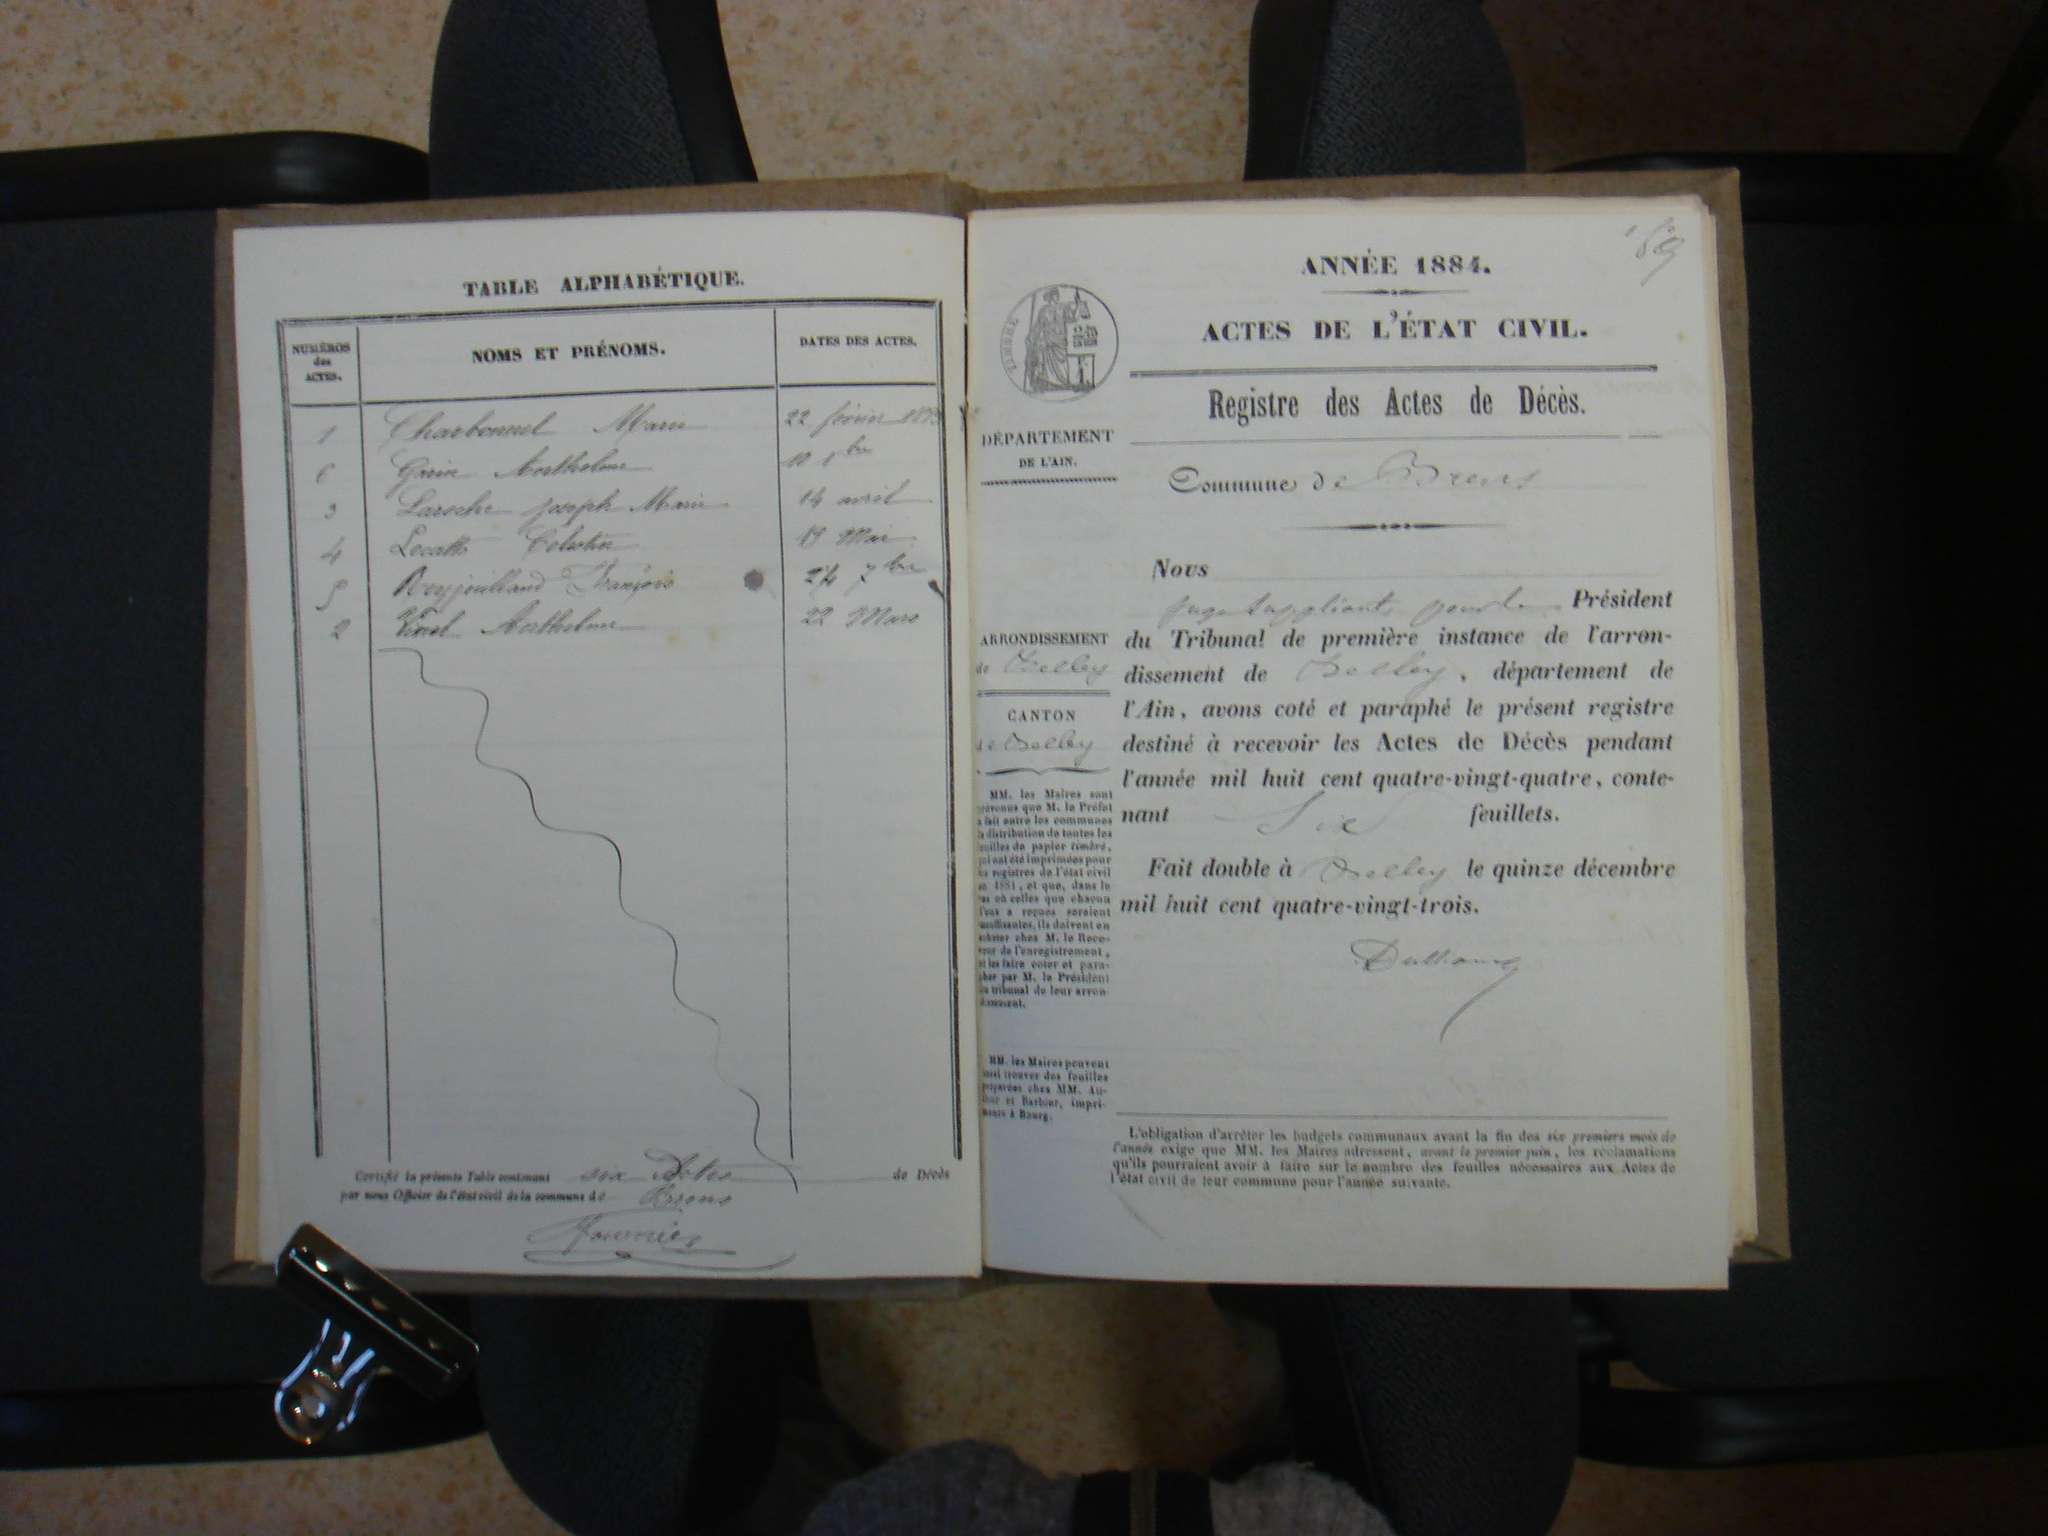 TABLE ALPHABÉTIQUE.
NUMÉROS des ACTES.
NOMS ET PRÉNOMS.
DATES DES ACTES.
1 Charbonnel Marie 22 février
6 Barthelme
3 Laroche Joseph Marie 14 avril
4 Mai
5 François 24 7bre
2 Barthelme 22 Mars
Certifié la présente Table contenant six Actes de Décès
par nous Officier de l'état civil de la commune de Brens
Fournier
ANNÉE 1884.
ACTES DE L'ÉTAT CIVIL.
Registre des Actes de Décès.
TIMBRE
DÉPARTEMENT
DE L'AIN.
Commune de Brens
ARRONDISSEMENT
de Belley
CANTON
de Belley
MM. les Maires sont
prévenus que M. le Préfet
a fait entre les communes
la distribution de toutes les
feuilles de papier timbré,
qui ont été imprimées pour
les registres de l'état civil
en 1881, et que, dans le
cas où celles que chacun
d'eux a reçues seraient
insuffisantes, ils doivent en
acheter chez M. le Rece-
veur de l'enregistrement,
et les faire coter et para-
pher par M. le Président
du tribunal de leur arron-
dissement.
MM. les Maires peuvent
aussi trouver des feuilles
préparées chez MM. Au-
thier et Barbier, impri-
meurs à Bourg.
Nous
juge suppléant pour le Président
du Tribunal de première instance de l'arron-
dissement de Belley, département de
l'Ain, avons coté et paraphé le présent registre
destiné à recevoir les Actes de Décès pendant
l'année mil huit cent quatre-vingt-quatre, conte-
nant Six feuillets.
Fait double à Belley le quinze décembre
mil huit cent quatre-vingt-trois.
L'obligation d'arrêter les budgets communaux avant la fin des six premiers mois de
l'année exige que MM. les Maires adressent, avant le premier juin, les réclamations
qu'ils pourraient avoir à faire sur le nombre des feuilles nécessaires aux Actes de
l'état civil de leur commune pour l'année suivante.